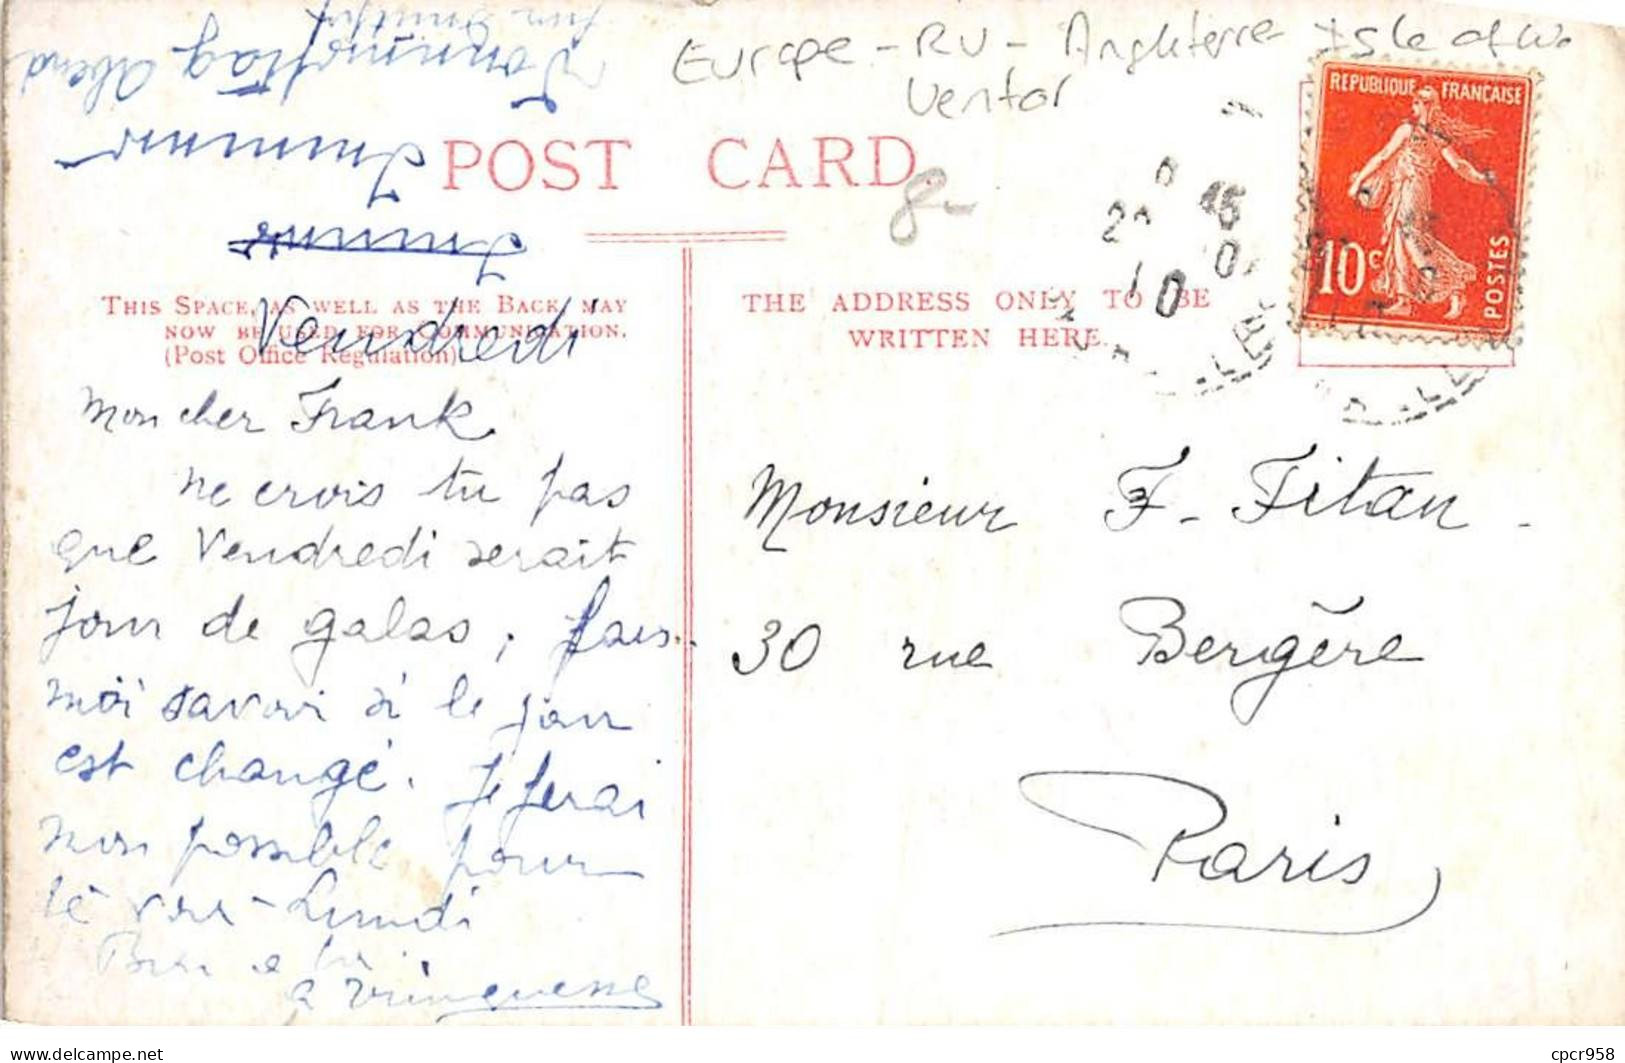 Europe - RU - Angleterre Isle of W.
Ventor
POST CARD
8-
REPUBLIQUE FRANÇAISE
10c
POSTES
THIS SPACE, AS WELL AS THE BACK MAY
NOW BE USED FOR COMMUNICATION.
(Post Office Regulation)
THE ADDRESS ONLY TO BE
WRITTEN HERE.
Vendredi
Mon cher Frank
ne crois tu pas
que Vendredi serait
jour de galas, fais-
moi savoir si le jour
est changé. Je ferai
mon possible pour
te voir Lundi
Monsieur F. Titan.
30 rue Bergère
Paris
cpcr958